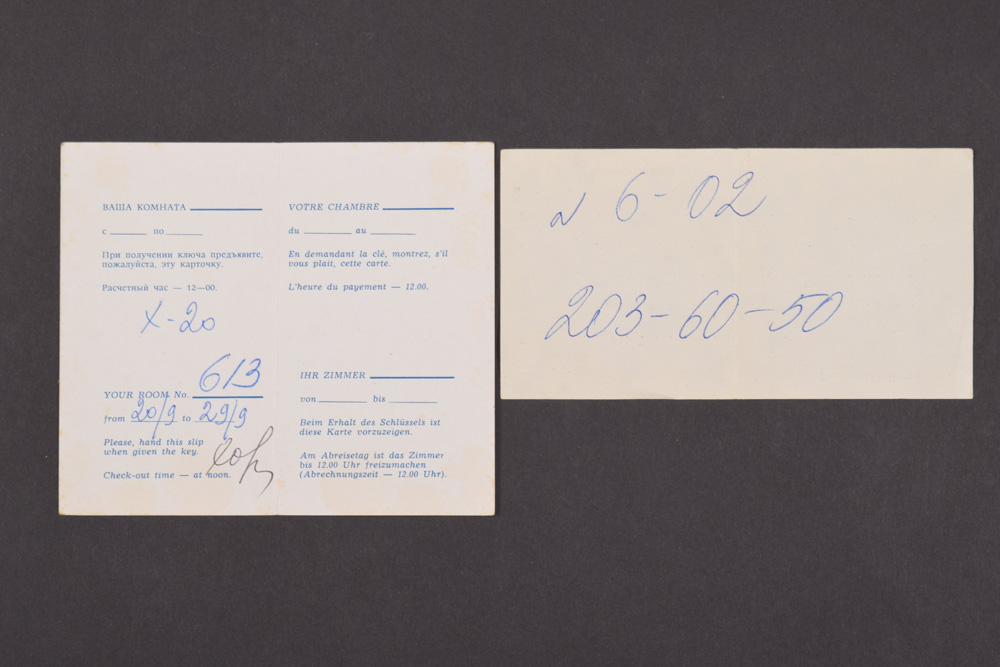 ВАША КОМНАТА
с по
При получении ключа предъявите,
пожалуйста, эту карточку.
Расчетный час — 12—00.
X-20
VOTRE CHAMBRE
du au
En demandant la clé, montrez, s'il
vous plait, cette carte.
L'heure du payement — 12.00.
YOUR ROOM No. 613
from 20/9 to 29/9
Please, hand this slip
when given the key.
Check-out time — at noon.
IHR ZIMMER
von bis
Beim Erhalt des Schlüssels ist
diese Karte vorzuzeigen.
Am Abreisetag ist das Zimmer
bis 12.00 Uhr freizumachen
(Abrechnungszeit — 12.00 Uhr).
6-02
203-60-50